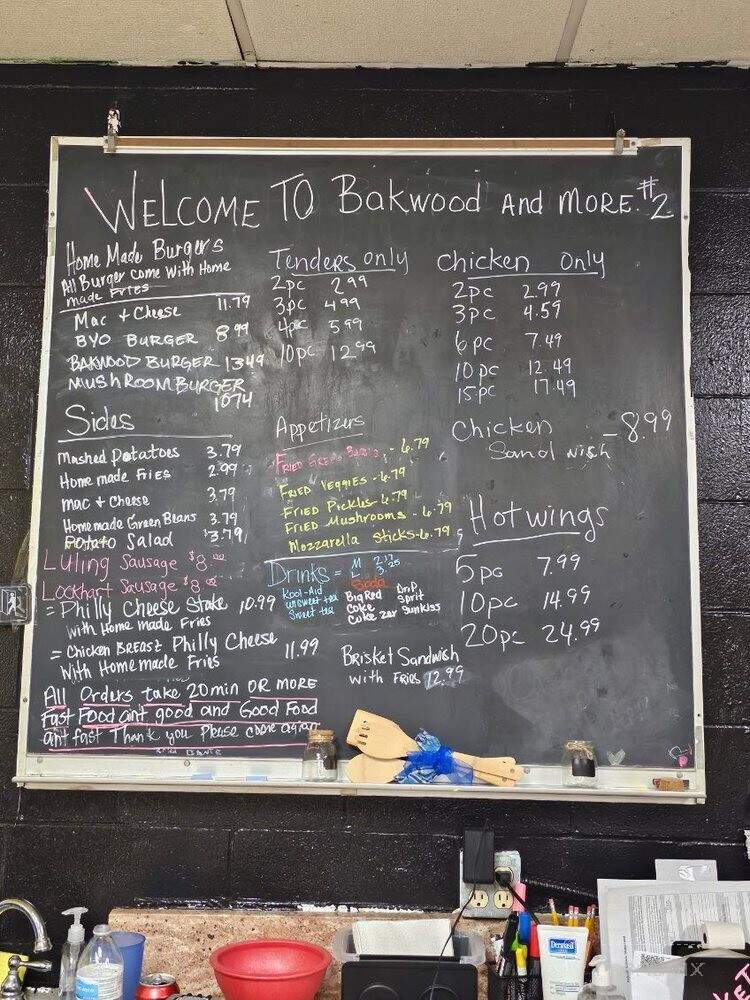 WELCOME TO Bakwood AND MORE. #2
Home Made Burgers
All Burger come With Home
made Fries
Mac + Cheese 11.79
BYO BURGER 8.99
BAKWOOD BURGER 13.49
MUSHROOM BURGER
10.74
Sides
Mashed Potatoes 3.79
Home made Fries 2.99
mac + cheese 3.79
Home made Green Beans 3.79
Potato Salad $3.79
Luling Sausage $8.00
Lockhart Sausage $8.00
= Philly Cheese Stake 10.99
with Home made Fries
= Chicken BREAST Philly Cheese 11.99
With Home made Fries
All Orders take 20 min OR MORE
Fast Food aint good and Good Food
aint fast Thank you Please come again
Tenders Only
2pc 2.99
3pc 4.99
4pc 5.99
10pc 12.99
Appetizers
FRIED GREEN BEANS - 6.79
FRIED VEGGIES - 6.79
FRIED Pickles - 6.79
FRIED Mushrooms - 6.79
Mozzarella Sticks - 6.79
Drinks = M 2.17
L 3.25
Soda
Kool-Aid
unsweet tea
Sweet tea
Big Red
Coke
Coke Zer
DrP
Sprit
Sunkiss
Brisket Sandwish
with Fries 12.99
Chicken Only
2pc 2.99
3pc 4.59
6pc 7.49
10pc 12.49
15pc 17.49
Chicken - 8.99
Sandwish
Hotwings
5pc 7.99
10pc 14.99
20pc 24.99
Dermasil